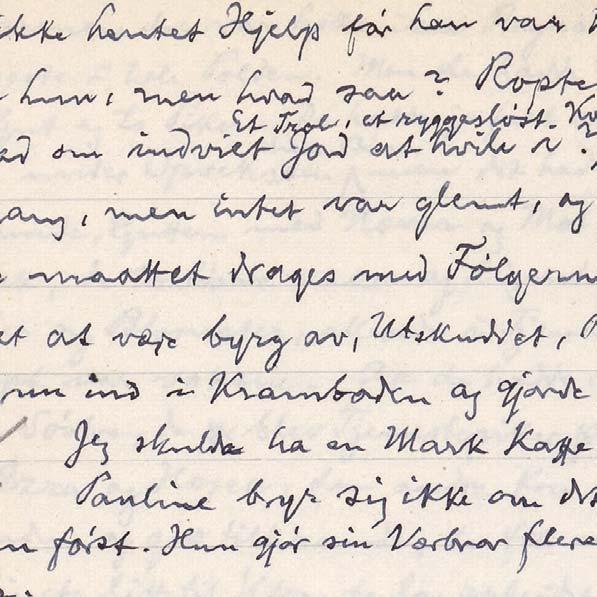 ikke hentet Hjelp før han var
hun, men hvad saa? Ropte
Et Trol, et ryggesløst
ad om indviet Jord at hvile i?
gang, men intet var glemt, og
maattet drages med Følgerne
et at være byrg av, Utskuddet,
nu ind i Kramboden og gjorde
Jeg skulde ha en Mark Kaffe
Pauline bryr sig ikke om det
n først. Hun gjør sin Værbror flere